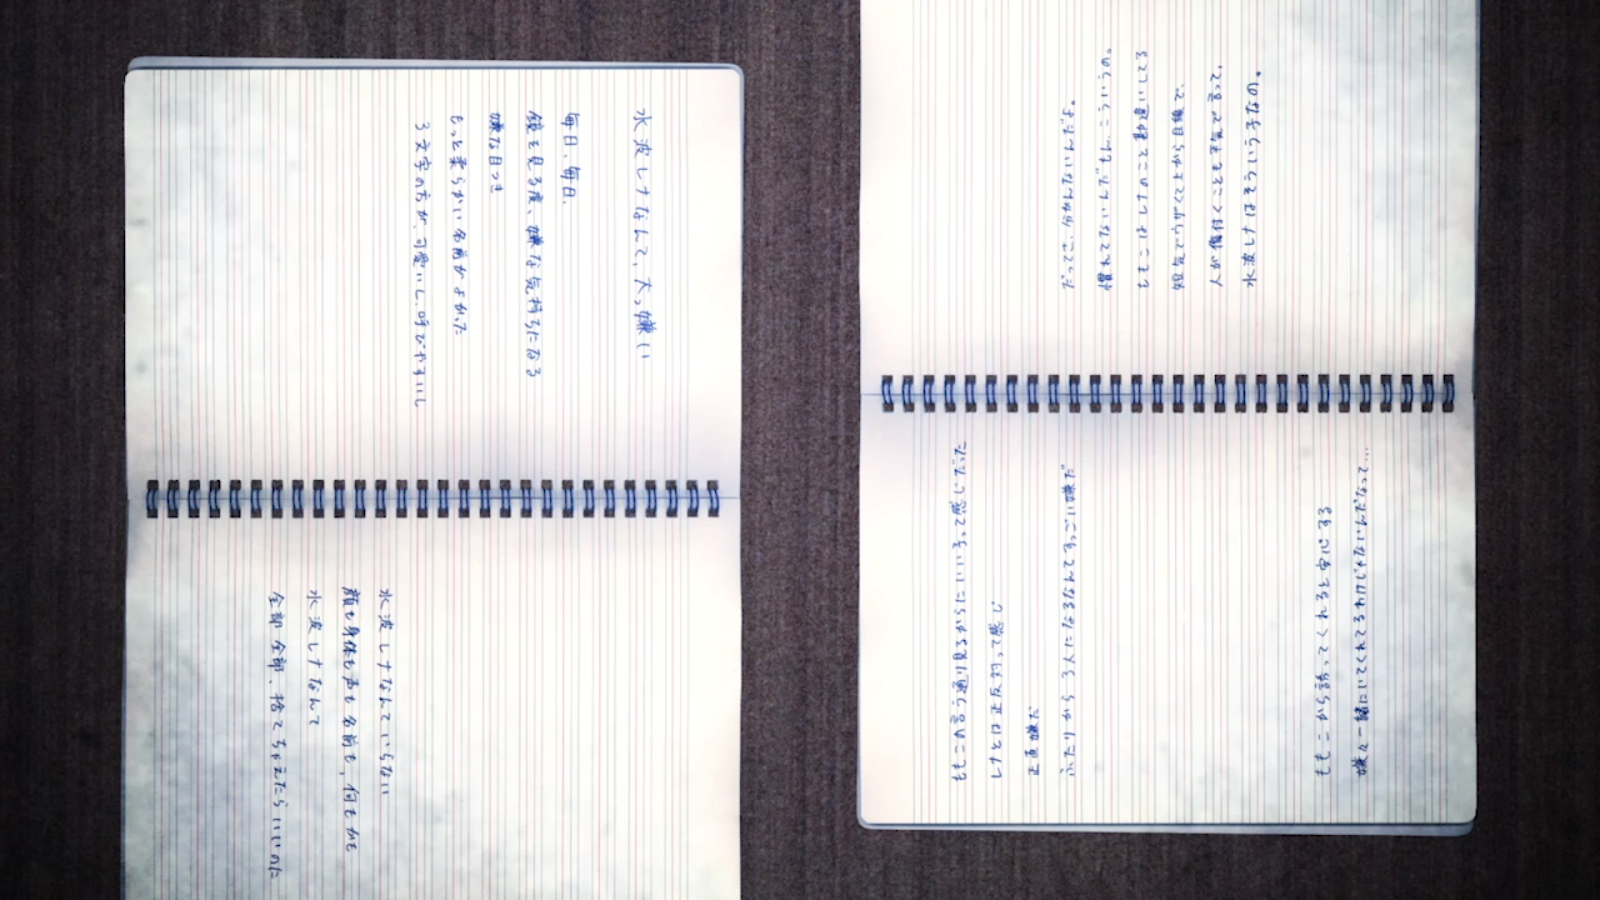 水波レナなんて、大っ嫌い
毎日、毎日、
鏡を見る度、嫌な気持ちになる
嫌な目つき
もっと柔らかい名前がよかった
3文字の方が、可愛いし、呼びやすいし
水波レナなんていらない
顔も身体も声も名前も、何もかも
水波レナなんて
全部全部、捨てちゃえたらいいのに
だってさ、分かんないんだよ。
慣れてないんだもん、こういうの。
ももこはレナのこと勘違いしてる
短気でウザくて上から目線で、
人が傷付くことも平気で言って、
水波レナはそういう子なの。
ももこの言う通り見るからにいい子って感じだった
レナとは正反対って感じ
正直嫌だ
ふたりから3人になるなんてすっごい嫌だ
ももこから誘ってくれると安心する
嫌々一緒にいてくれてるわけじゃないんだなって…